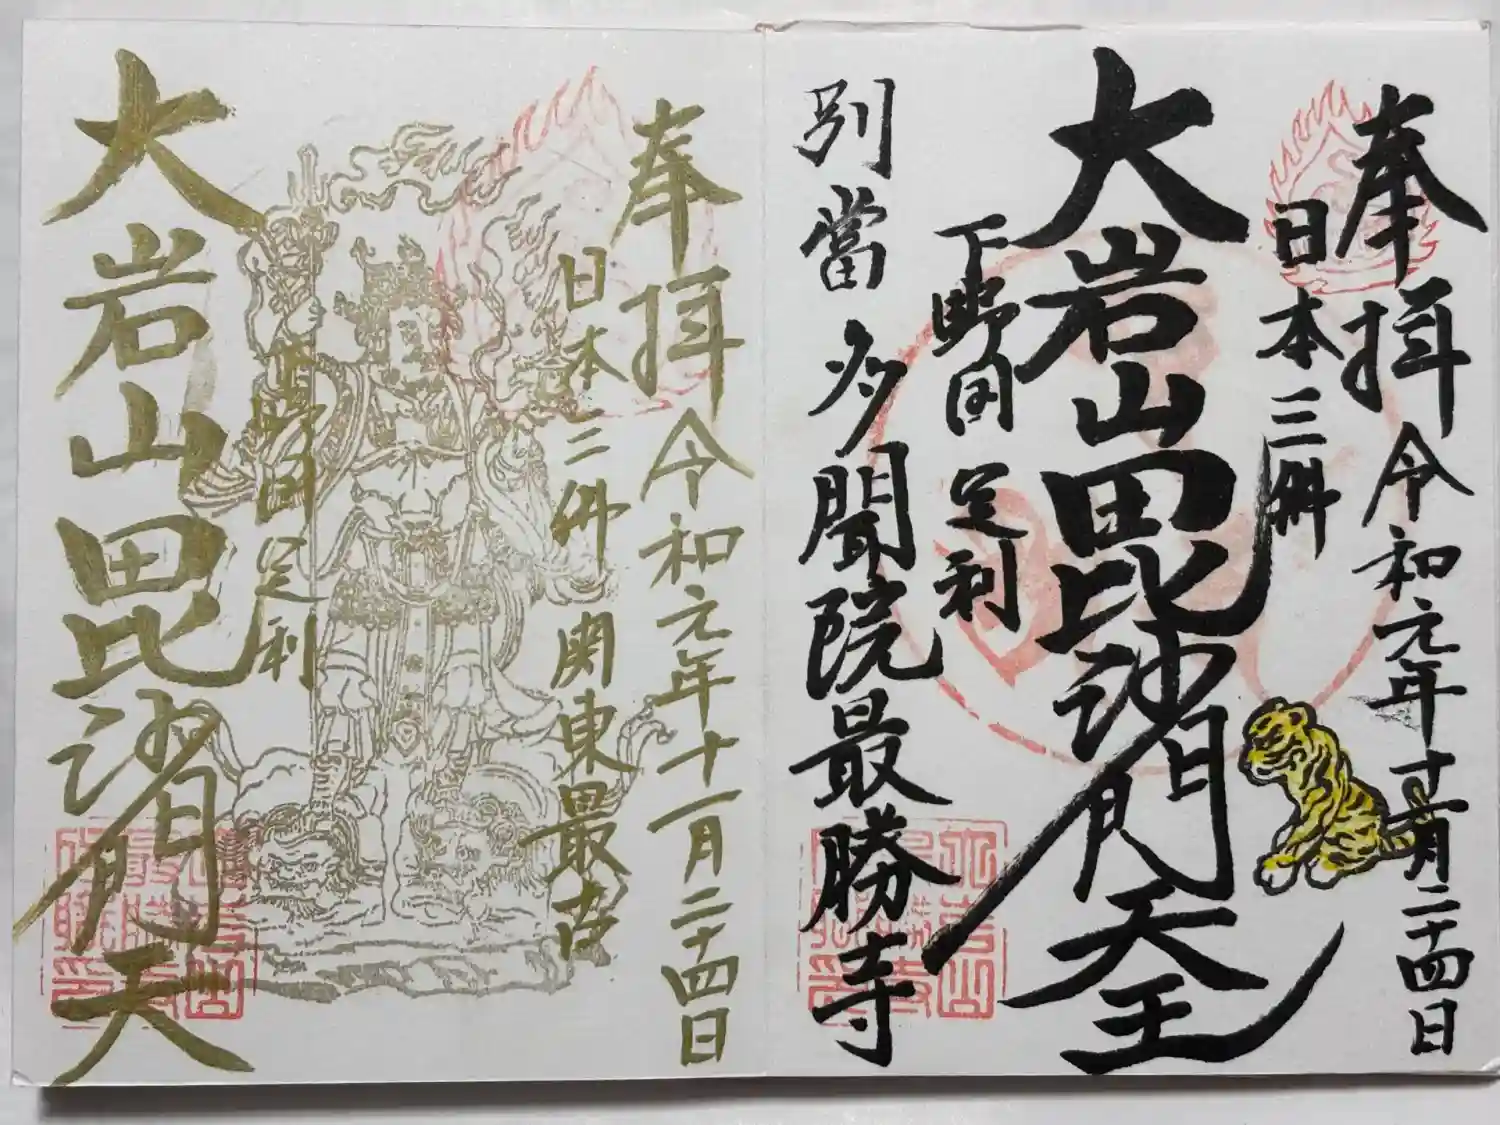 奉拝 令和元年十一月二十四日
日本三躰
大岩山毘沙門天王
下野国 足利
別當 多聞院最勝寺
奉拝 令和元年十一月二十四日
日本三躰 関東最古
下野国 足利
大岩山毘沙門天